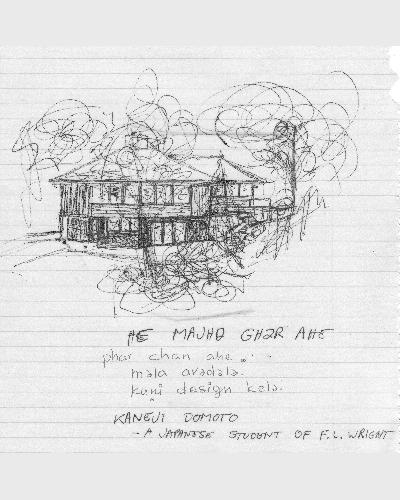 HE MAJHƏ GHƏR AHE
phar chan ahe.
mala avadala.
kuni design kela.
KANEJI DOMOTO
- A JAPANESE STUDENT OF F.L. WRIGHT